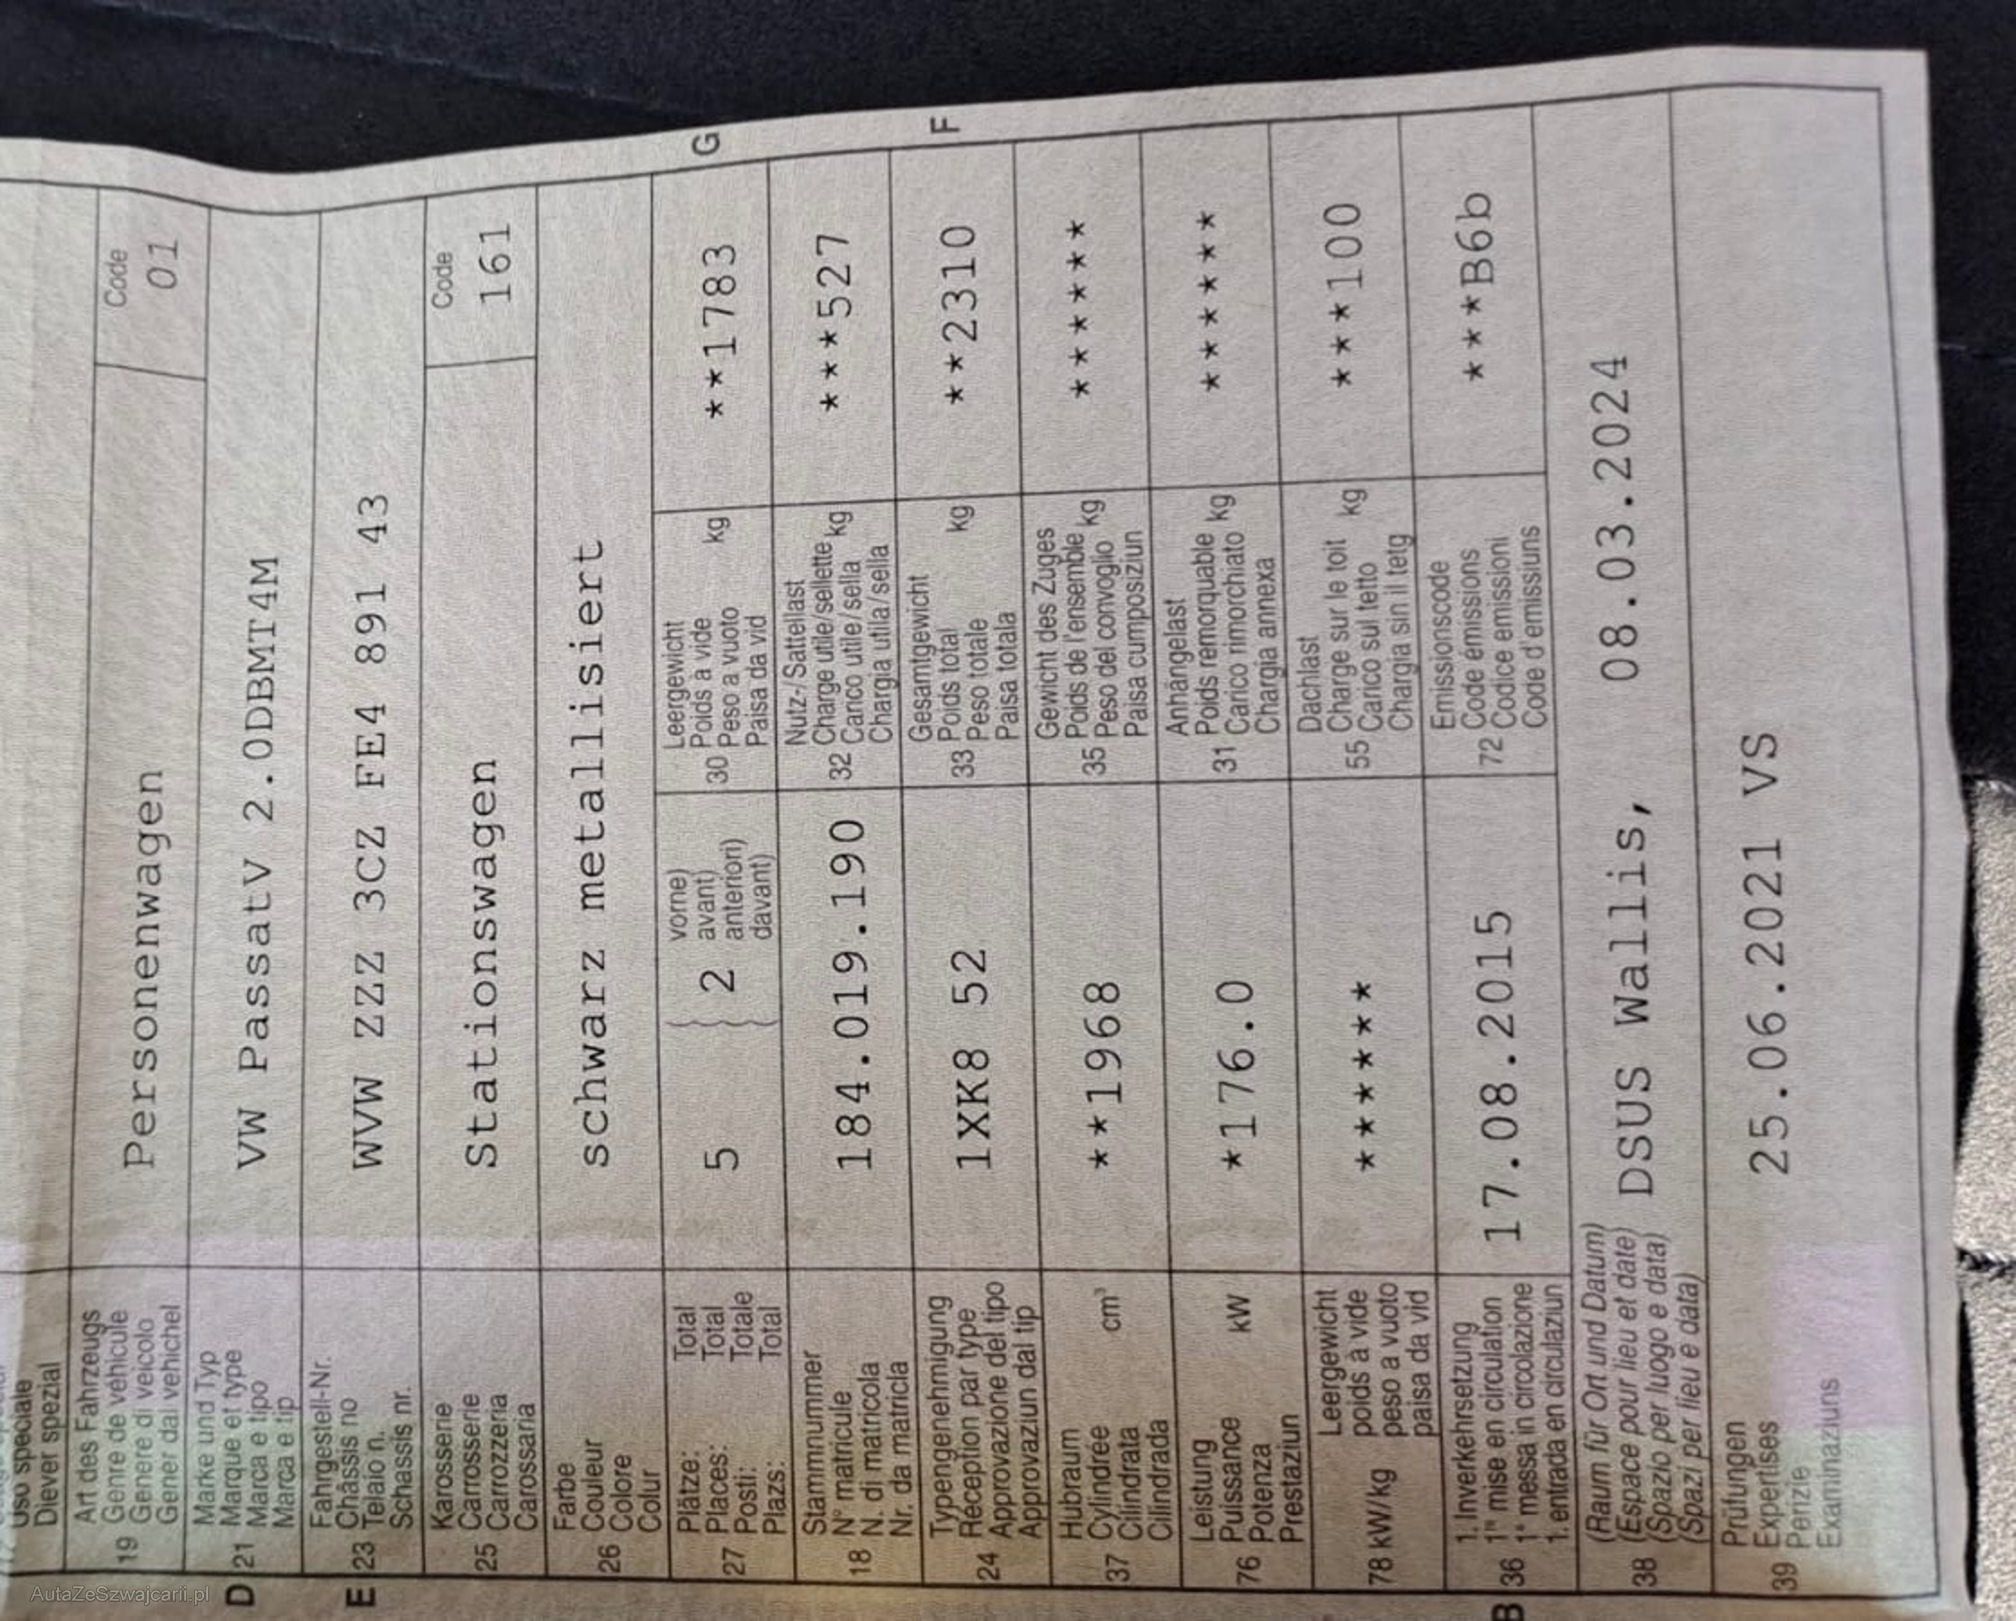 Uso speciale
Diever spezial
Art des Fahrzeugs
19 Genre de véhicule
Genere di veicolo
Gener dal vehichel
Personenwagen
Code
01
Marke und Typ
D 21 Marque et type
Marca e tipo
Marca e tip
VW PassatV 2.0DBMT4M
Fahrgestell-Nr.
Châssis no
E 23 Telaio n.
Schassis nr.
WVW ZZZ 3CZ FE4 891 43
Karosserie
25 Carrosserie
Carrozzeria
Carossaria
Stationswagen
Code
161
Farbe
26 Couleur
Colore
Colur
schwarz metallisiert
Plätze: Total
27 Places: Total
Posti: Totale
Plazs: Total
5
2
vorne)
avant)
anteriori)
davant)
Leergewicht
30 Poids à vide kg
Peso a vuoto
Paisa da vid
**1783
G
Stammnummer
18 N° matricule
N. di matricola
Nr. da matricla
184.019.190
Nutz-/Sattellast
32 Charge utile/sellette kg
Carico utile/sella
Chargia utila/sella
***527
Typengenehmigung
24 Réception par type
Approvazione del tipo
Approvaziun dal tip
1XK8 52
Gesamtgewicht
33 Poids total kg
Peso totale
Paisa totala
**2310
F
Hubraum
37 Cylindrée cm³
Cilindrata
Cilindrada
**1968
Gewicht des Zuges
35 Poids de l'ensemble kg
Peso del convoglio
Paisa cumposiziun
*******
Leistung
76 Puissance kW
Potenza
Prestaziun
*176.0
Anhängelast
31 Poids remorquable kg
Carico rimorchiato
Chargia annexa
*******
78 kW/kg
Leergewicht
poids à vide
peso a vuoto
paisa da vid
*******
Dachlast
55 Charge sur le toit kg
Carico sul tetto
Chargia sin il tetg
***100
1. Inverkehrsetzung
B 36 1re mise en circulation
1a messa in circolazione
1. entrada en circulaziun
17.08.2015
Emissionscode
72 Code émissions
Codice emissioni
Code d'emissiuns
***B6b
(Raum für Ort und Datum)
38 (Espace pour lieu et date)
(Spazio per luogo e data)
(Spazi per lieu e data)
DSUS Wallis, 08.03.2024
Prüfungen
39 Expertises
Perizie
Examinaziuns
25.06.2021 VS
AutaZeSzwajcarii.pl